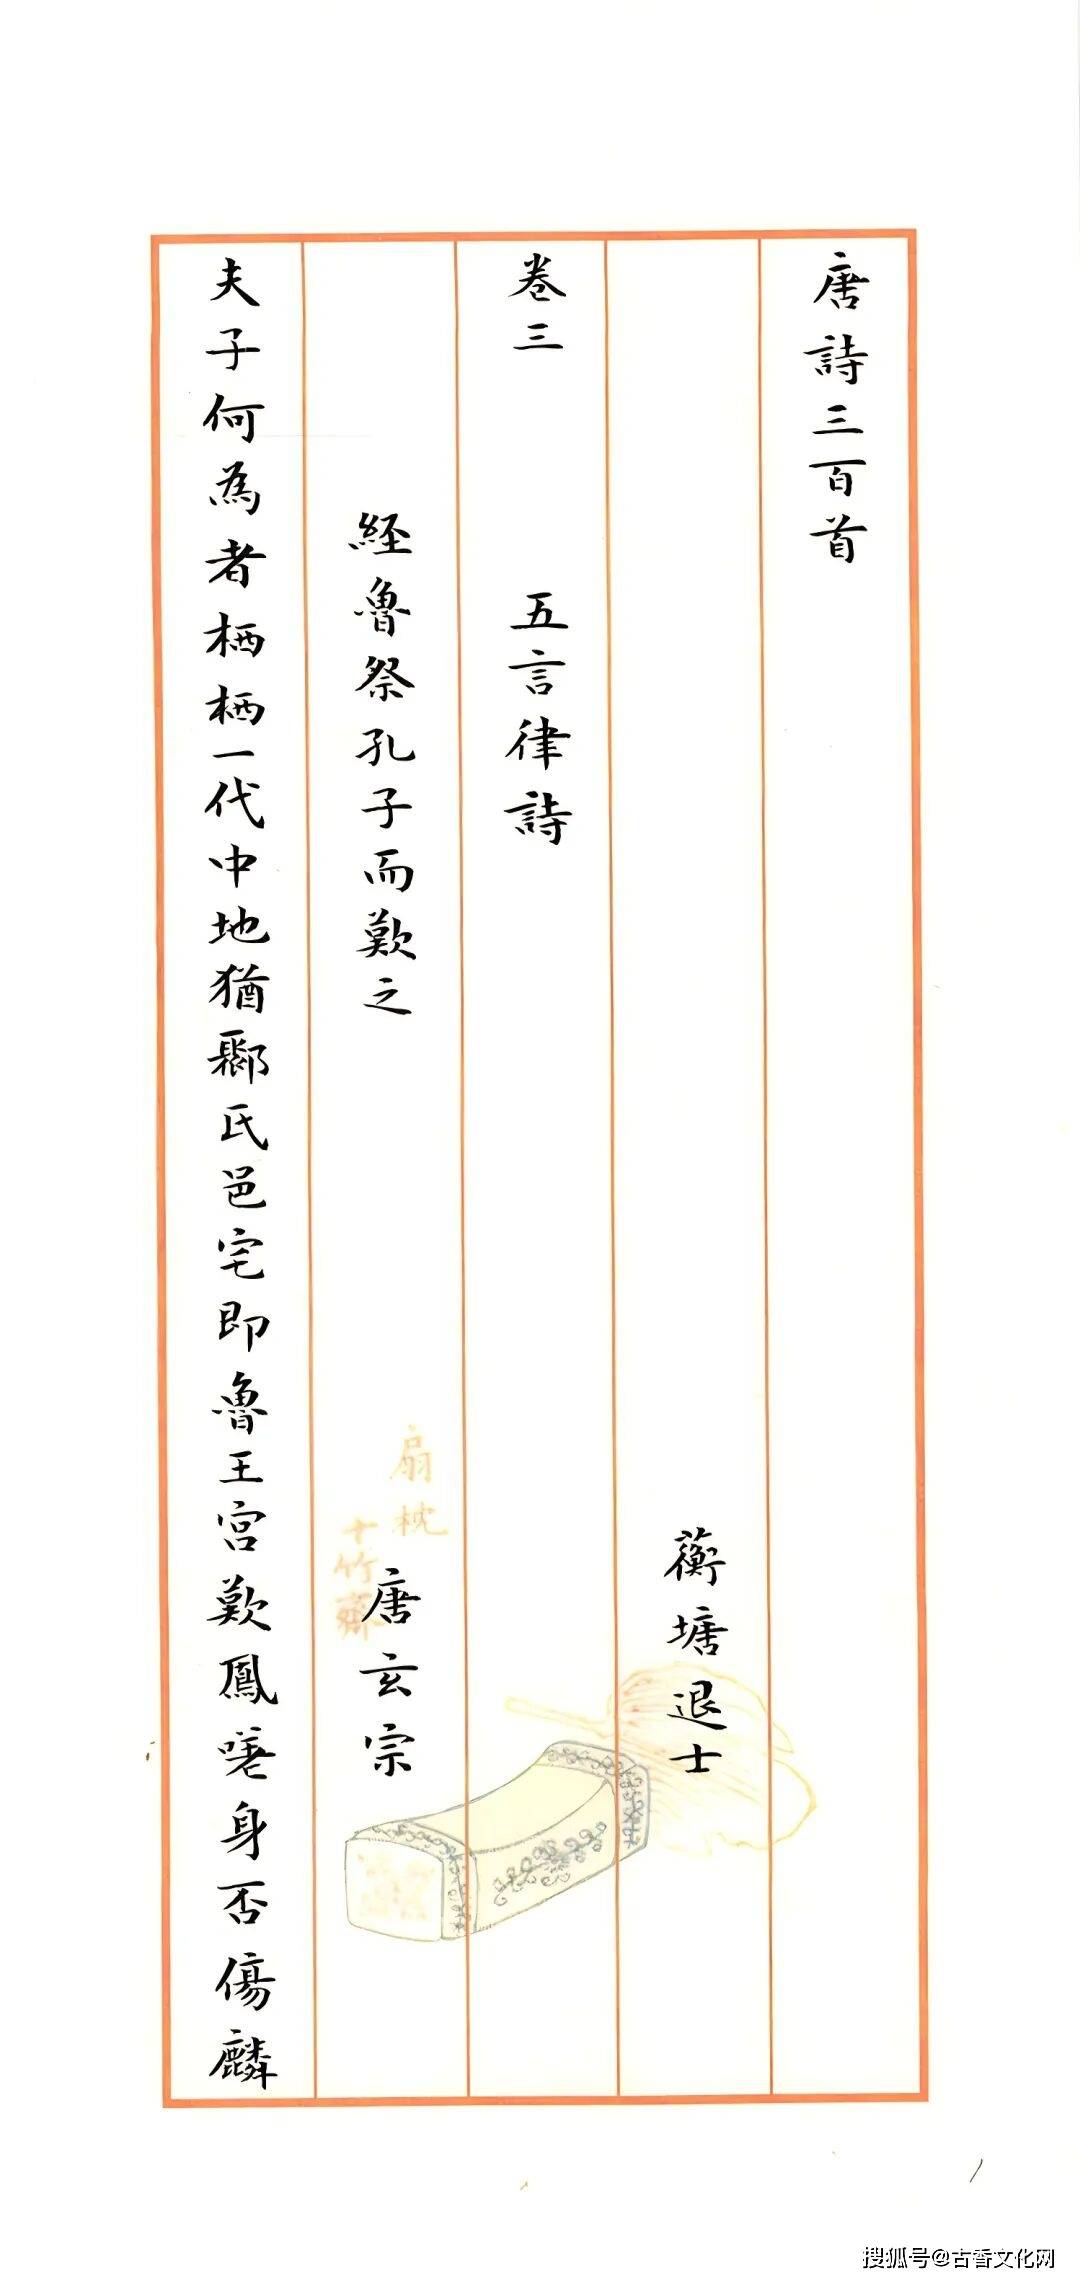 唐詩三百首
蘅塘退士
卷三 五言律詩
経魯祭孔子而歎之 唐玄宗
夫子何為者栖栖一代中地猶鄹氏邑宅即魯王宮歎鳳嗟身否傷麟
扇枕
十竹齋
搜狐号@古香文化网